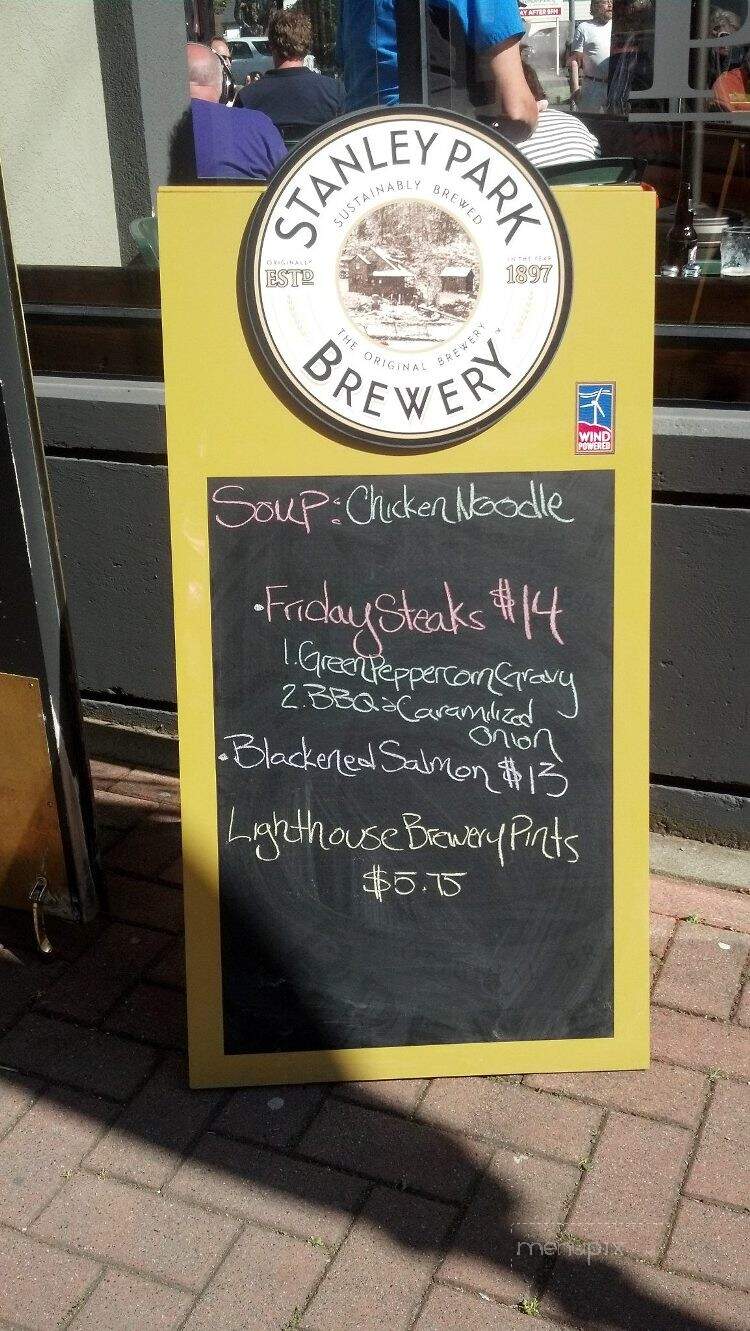 AY AFTER 5PM
STANLEY PARK
SUSTAINABLY BREWED
ORIGINALLY
ESTD
IN THE YEAR
1897
THE ORIGINAL BREWERY
BREWERY
WIND
POWERED
Soup: Chicken Noodle
•Friday Steaks $14
1. Green Peppercorn Gravy
2. BBQ & Caramilized
onion
•Blackened Salmon $13
Lighthouse Brewery Pints
$5.75
menupix